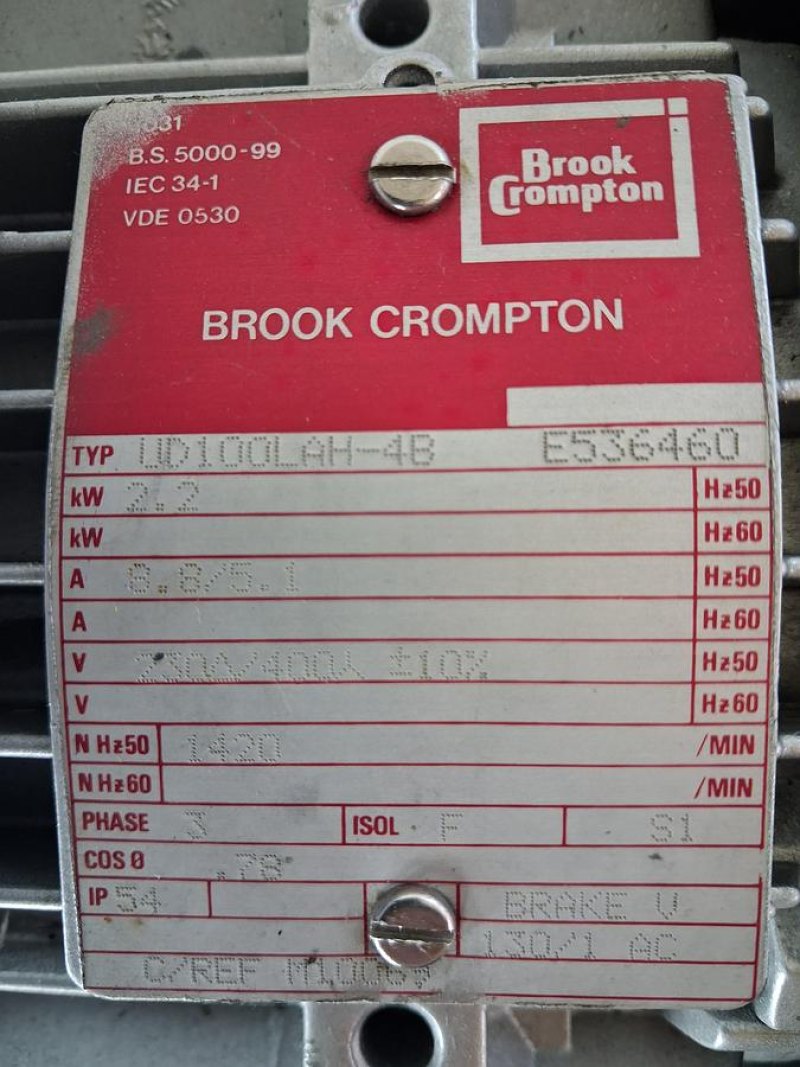 B.S. 5000-99
IEC 34-1
VDE 0530
Brook
Crompton
BROOK CROMPTON
TYP UD100LAH-4B E536460
kW 2.2 Hz50
kW Hz60
A 8.8/5.1 Hz50
A Hz60
V 230Δ/400⅄ ±10% Hz50
V Hz60
N Hz50 1420 /MIN
N Hz60 /MIN
PHASE 3 ISOL F S1
COS Ø .78
IP 54 BRAKE V
130/1 AC
C/REF